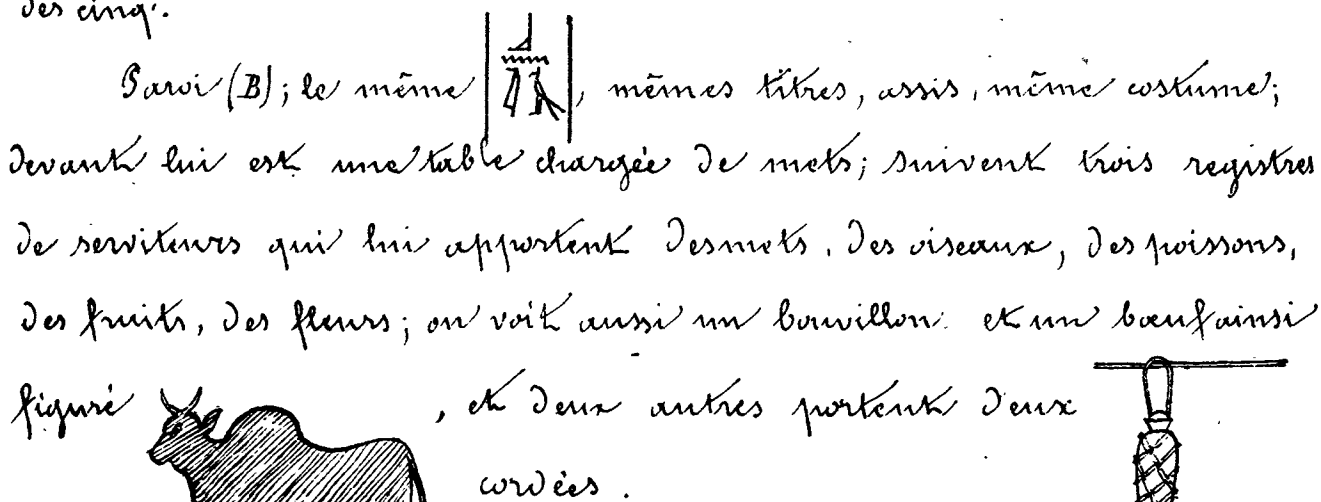 des cinq.
Paroi (B); le même 𓃀𓈖𓊪𓅡, mêmes titres, assis, même costume;
devant lui est une table chargée de mets; suivent trois registres
de serviteurs qui lui apportent des mets, des oiseaux, des poissons,
des fruits, des fleurs; on voit aussi un bouvillon et un bœuf ainsi
figuré , et deux autres portent deux
cordées.